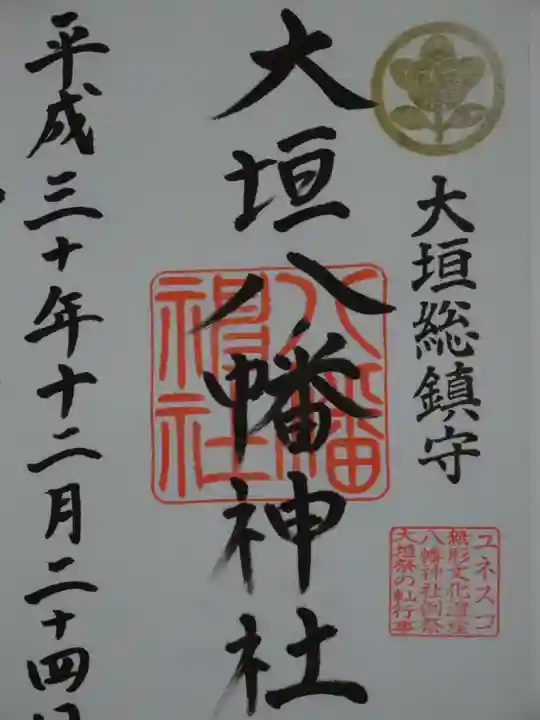 大垣総鎮守
ユネスコ
無形文化遺産
八幡神社例祭
大垣祭の軕行事
大垣八幡神社
八幡神社
平成三十年十二月二十四日